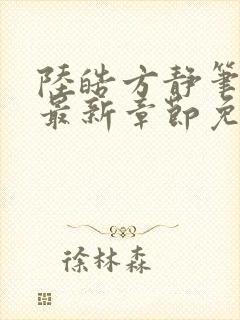 陸皓方静筆
最新章節免
徐林森